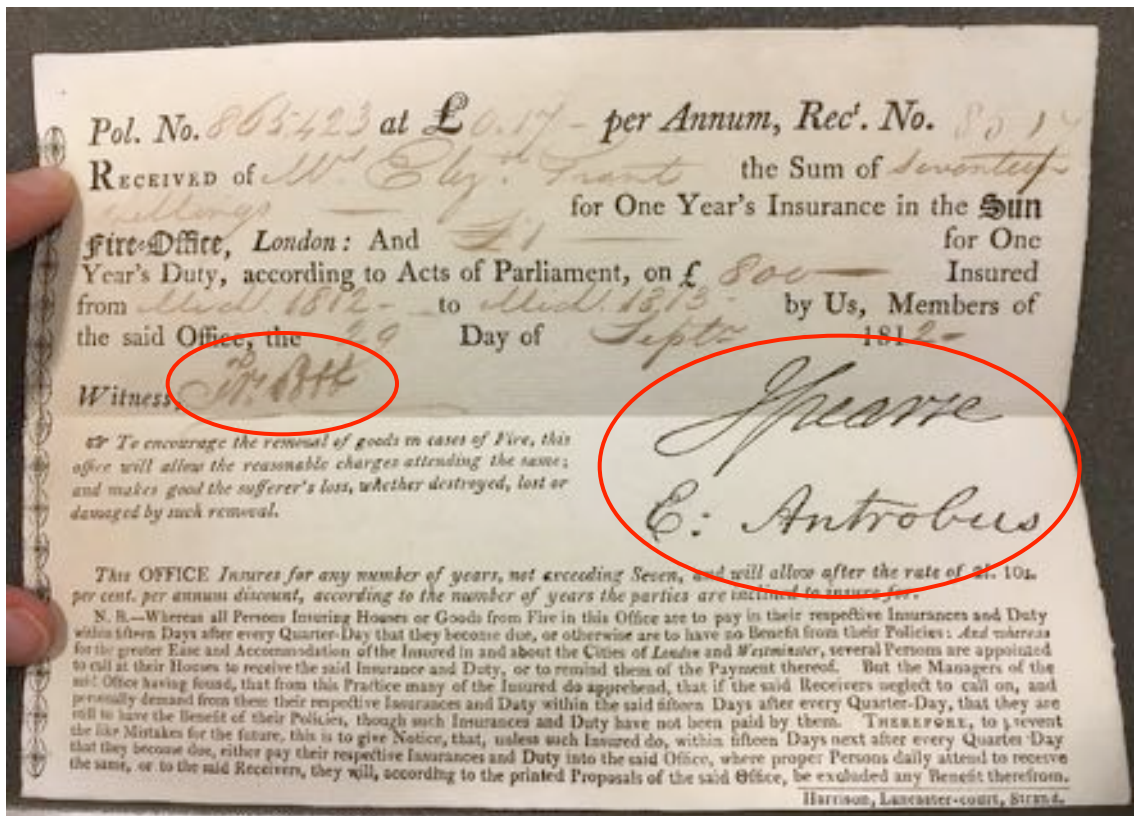 Pol. No. 865423 at £ 0.17 - per Annum, Rec't. No.
RECEIVED of Mrs Eliz.th Trant the Sum of Seventeen
shillings — for One Year's Insurance in the Sun
Fire-Office, London: And £1 — for One
Year's Duty, according to Acts of Parliament, on £ 800 — Insured
from Mich. 1812 - to Mich. 1813 - by Us, Members of
the said Office, the 29 Day of Septr 1812 -
Witness,
Spearse
E: Antrobus
☞ To encourage the removal of goods in cases of Fire, this
office will allow the reasonable charges attending the same;
and makes good the sufferer's loss, whether destroyed, lost or
damaged by such removal.
This OFFICE Insures for any number of years, not exceeding Seven, and will allow after the rate of 2l. 10s.
per cent. per annum discount, according to the number of years the parties are inclined to insure for.
N. B.—Whereas all Persons Insuring Houses or Goods from Fire in this Office are to pay in their respective Insurances and Duty
within fifteen Days after every Quarter-Day that they become due, or otherwise are to have no Benefit from their Policies: And whereas
for the greater Ease and Accommodation of the Insured in and about the Cities of London and Westminster, several Persons are appointed
to call at their Houses to receive the said Insurance and Duty, or to remind them of the Payment thereof. But the Managers of the
said Office having found, that from this Practice many of the Insured do apprehend, that if the said Receivers neglect to call on, and
personally demand from them their respective Insurances and Duty within the said fifteen Days after every Quarter-Day, that they are
still to have the Benefit of their Policies, though such Insurances and Duty have not been paid by them. THEREFORE, to prevent
the like Mistakes for the future, this is to give Notice, that, unless such Insured do, within fifteen Days next after every Quarter Day
that they become due, either pay their respective Insurances and Duty into the said Office, where proper Persons daily attend to receive
the same, or to the said Receivers, they will, according to the printed Proposals of the said Office, be excluded any Benefit therefrom.
Harrison, Lancaster-court, Strand.